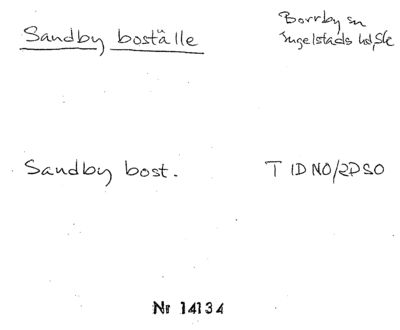 Sandby boställe
Borrby sn
Ingelstads hd, Sk
Sandby bost.
T 1D NO/2D SO
Nr 14134